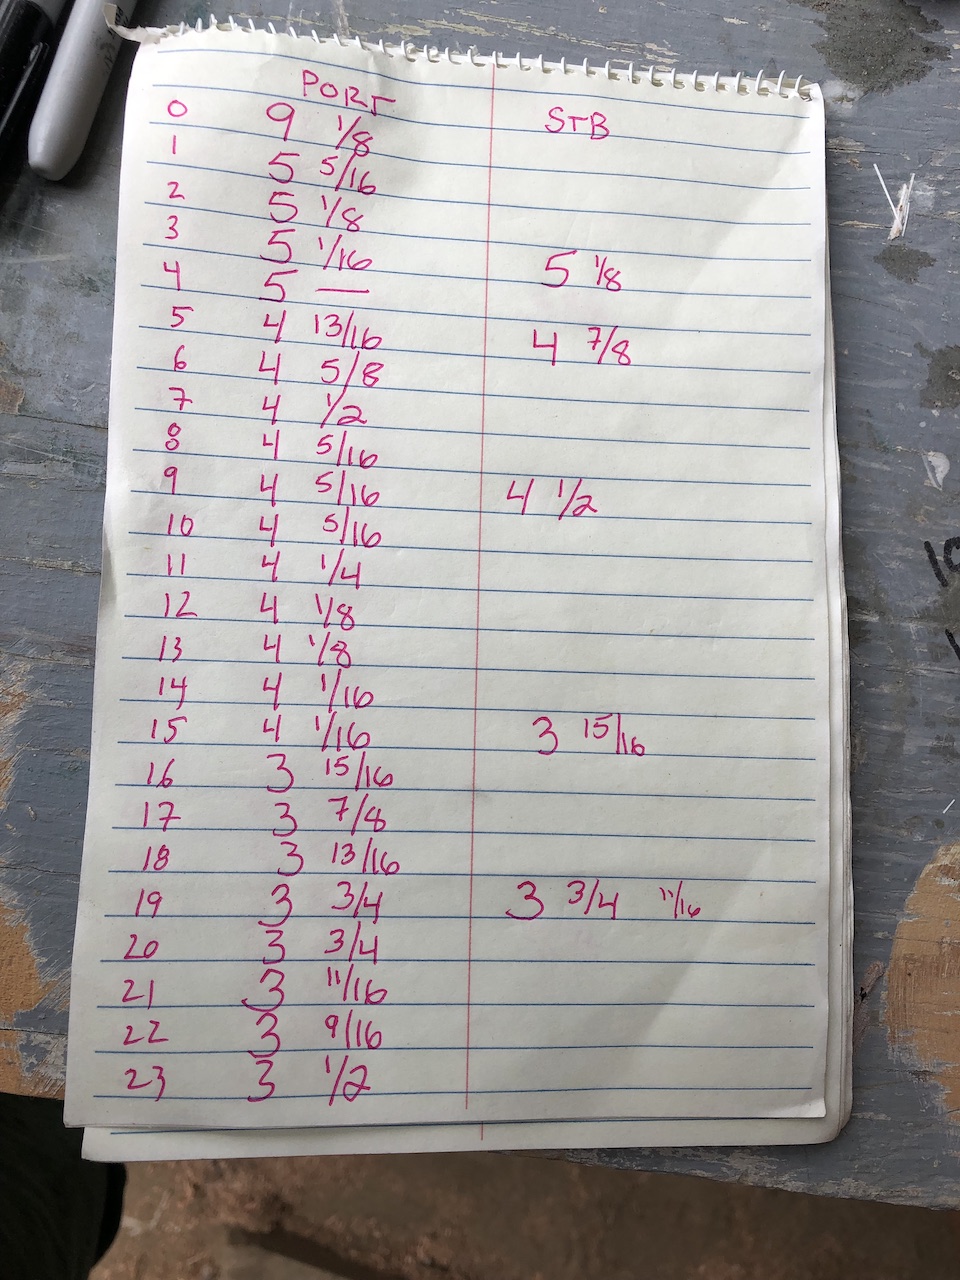 PORT STB
0 9 1/8
1 5 5/16
2 5 1/8
3 5 1/16 5 1/8
4 5 —
5 4 13/16 4 7/8
6 4 5/8
7 4 1/2
8 4 5/16
9 4 5/16 4 1/2
10 4 5/16
11 4 1/4
12 4 1/8
13 4 1/8
14 4 1/16
15 4 1/16 3 15/16
16 3 15/16
17 3 7/8
18 3 13/16
19 3 3/4 3 3/4 11/16
20 3 3/4
21 3 11/16
22 3 9/16
23 3 1/2